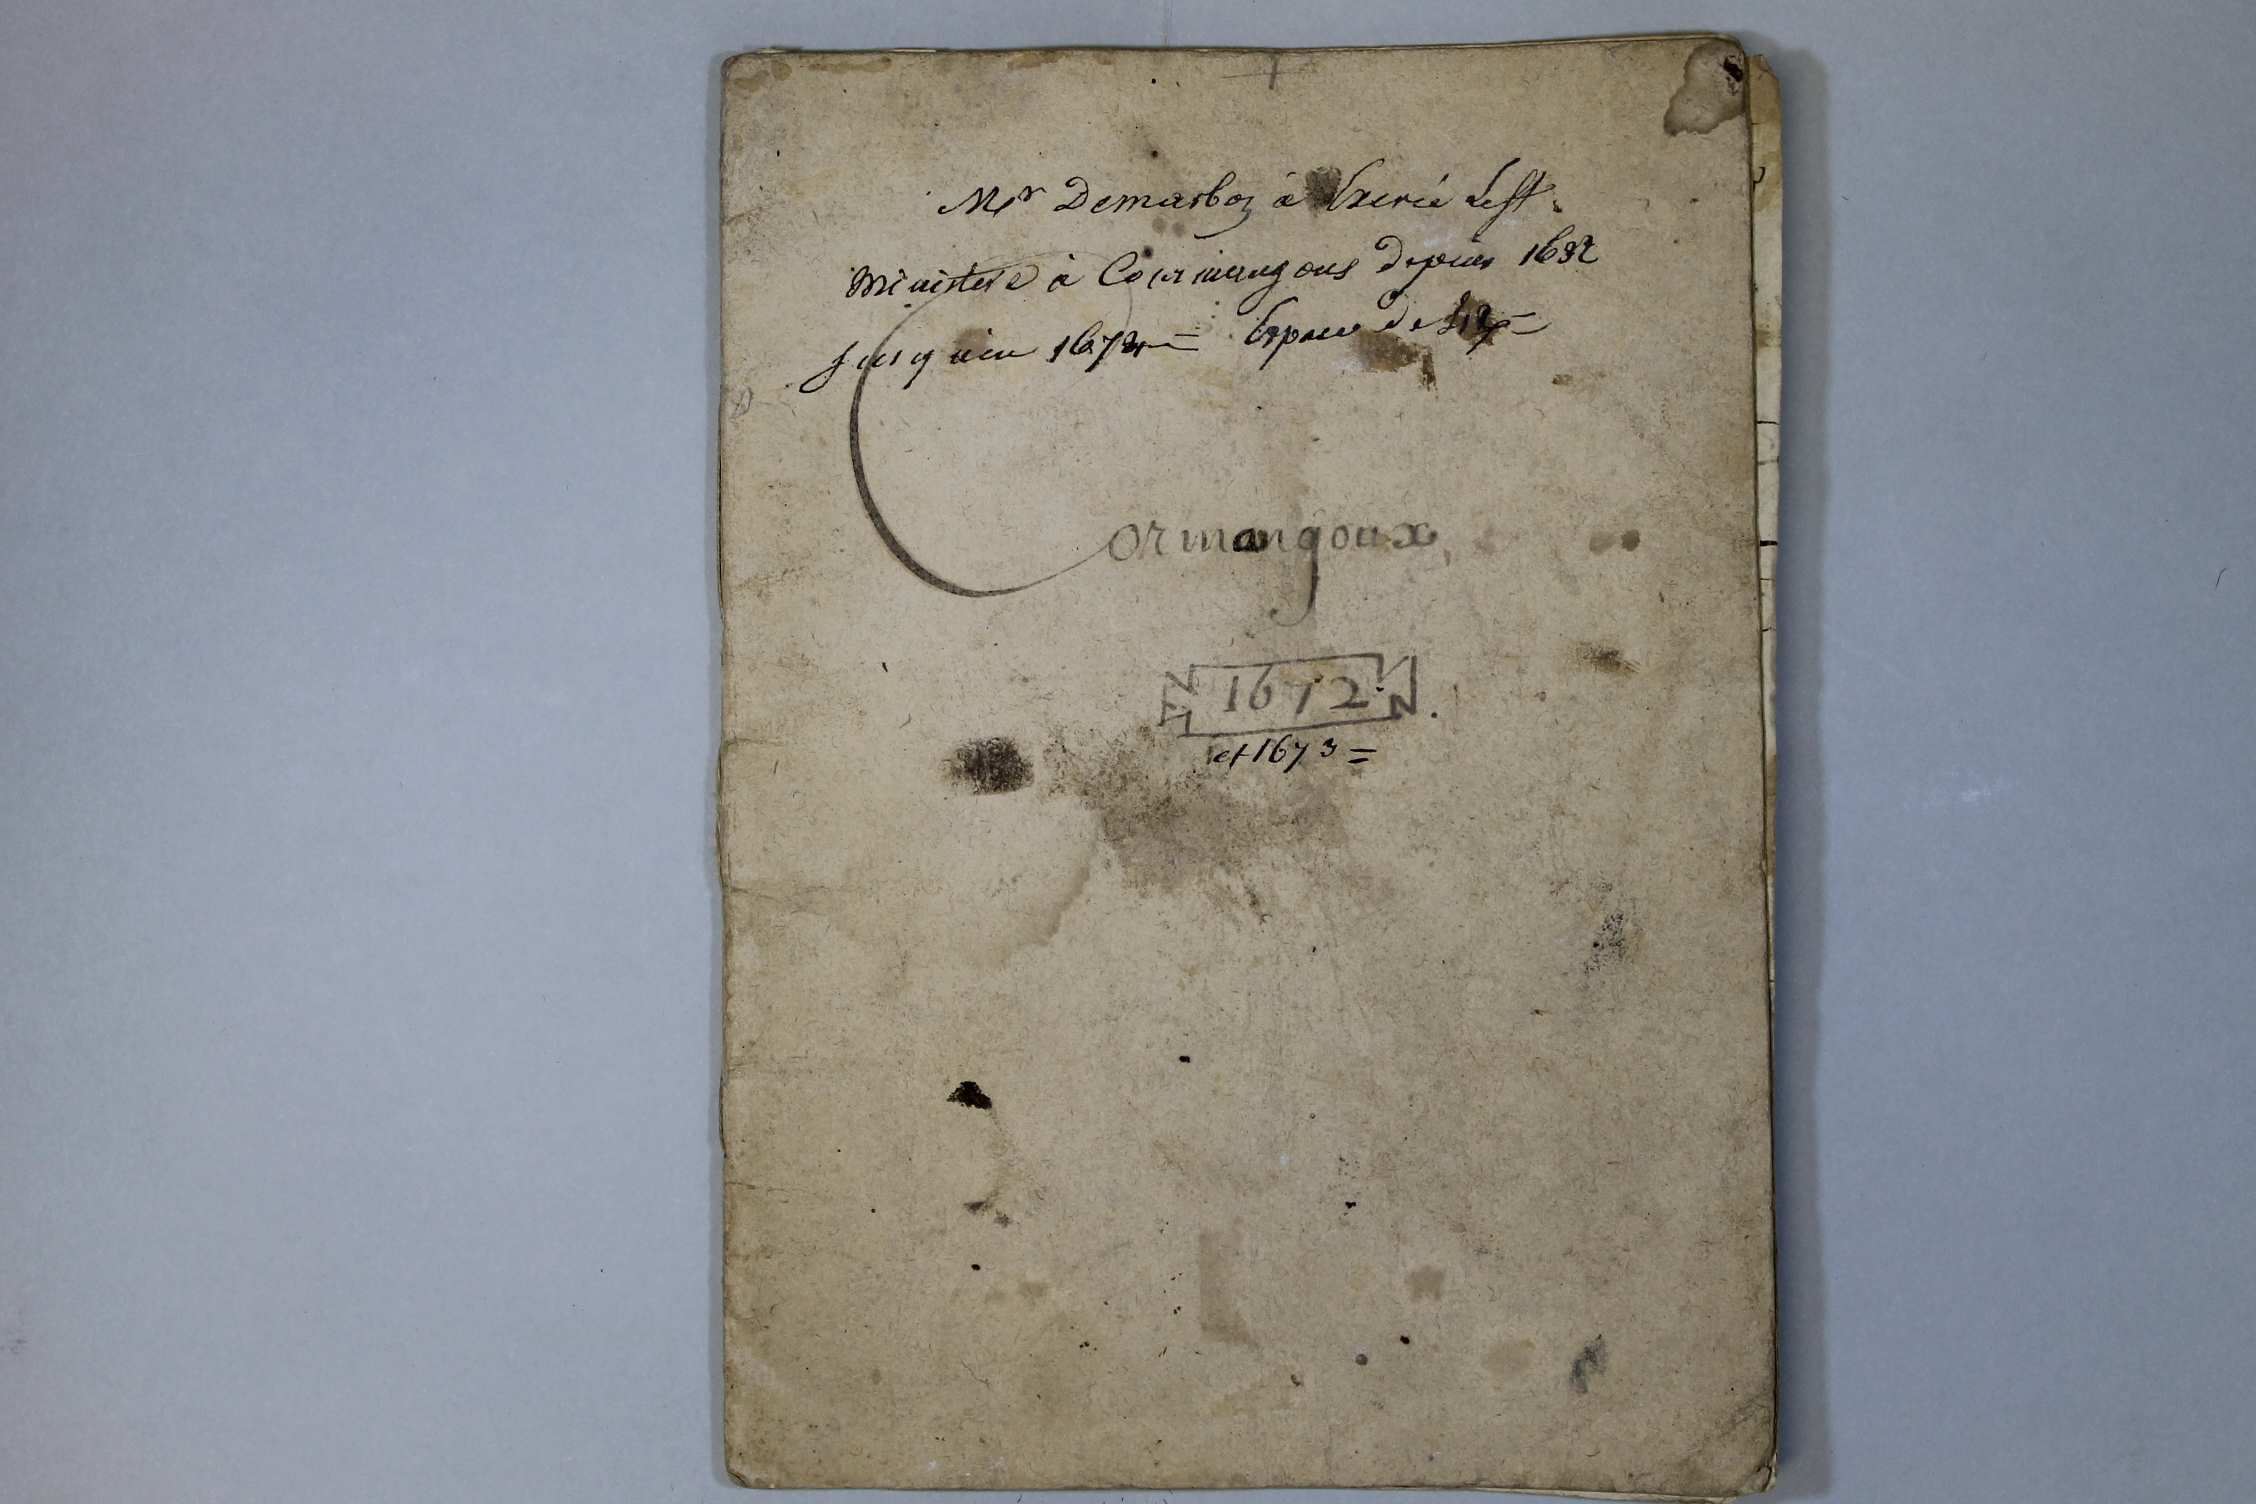 Mr Demarboz à Exercé Le st
Ministere à Cormangoux depuis 1632
Jusquien 1672 = Espace de
Cormangoux
1672
et 1673 =